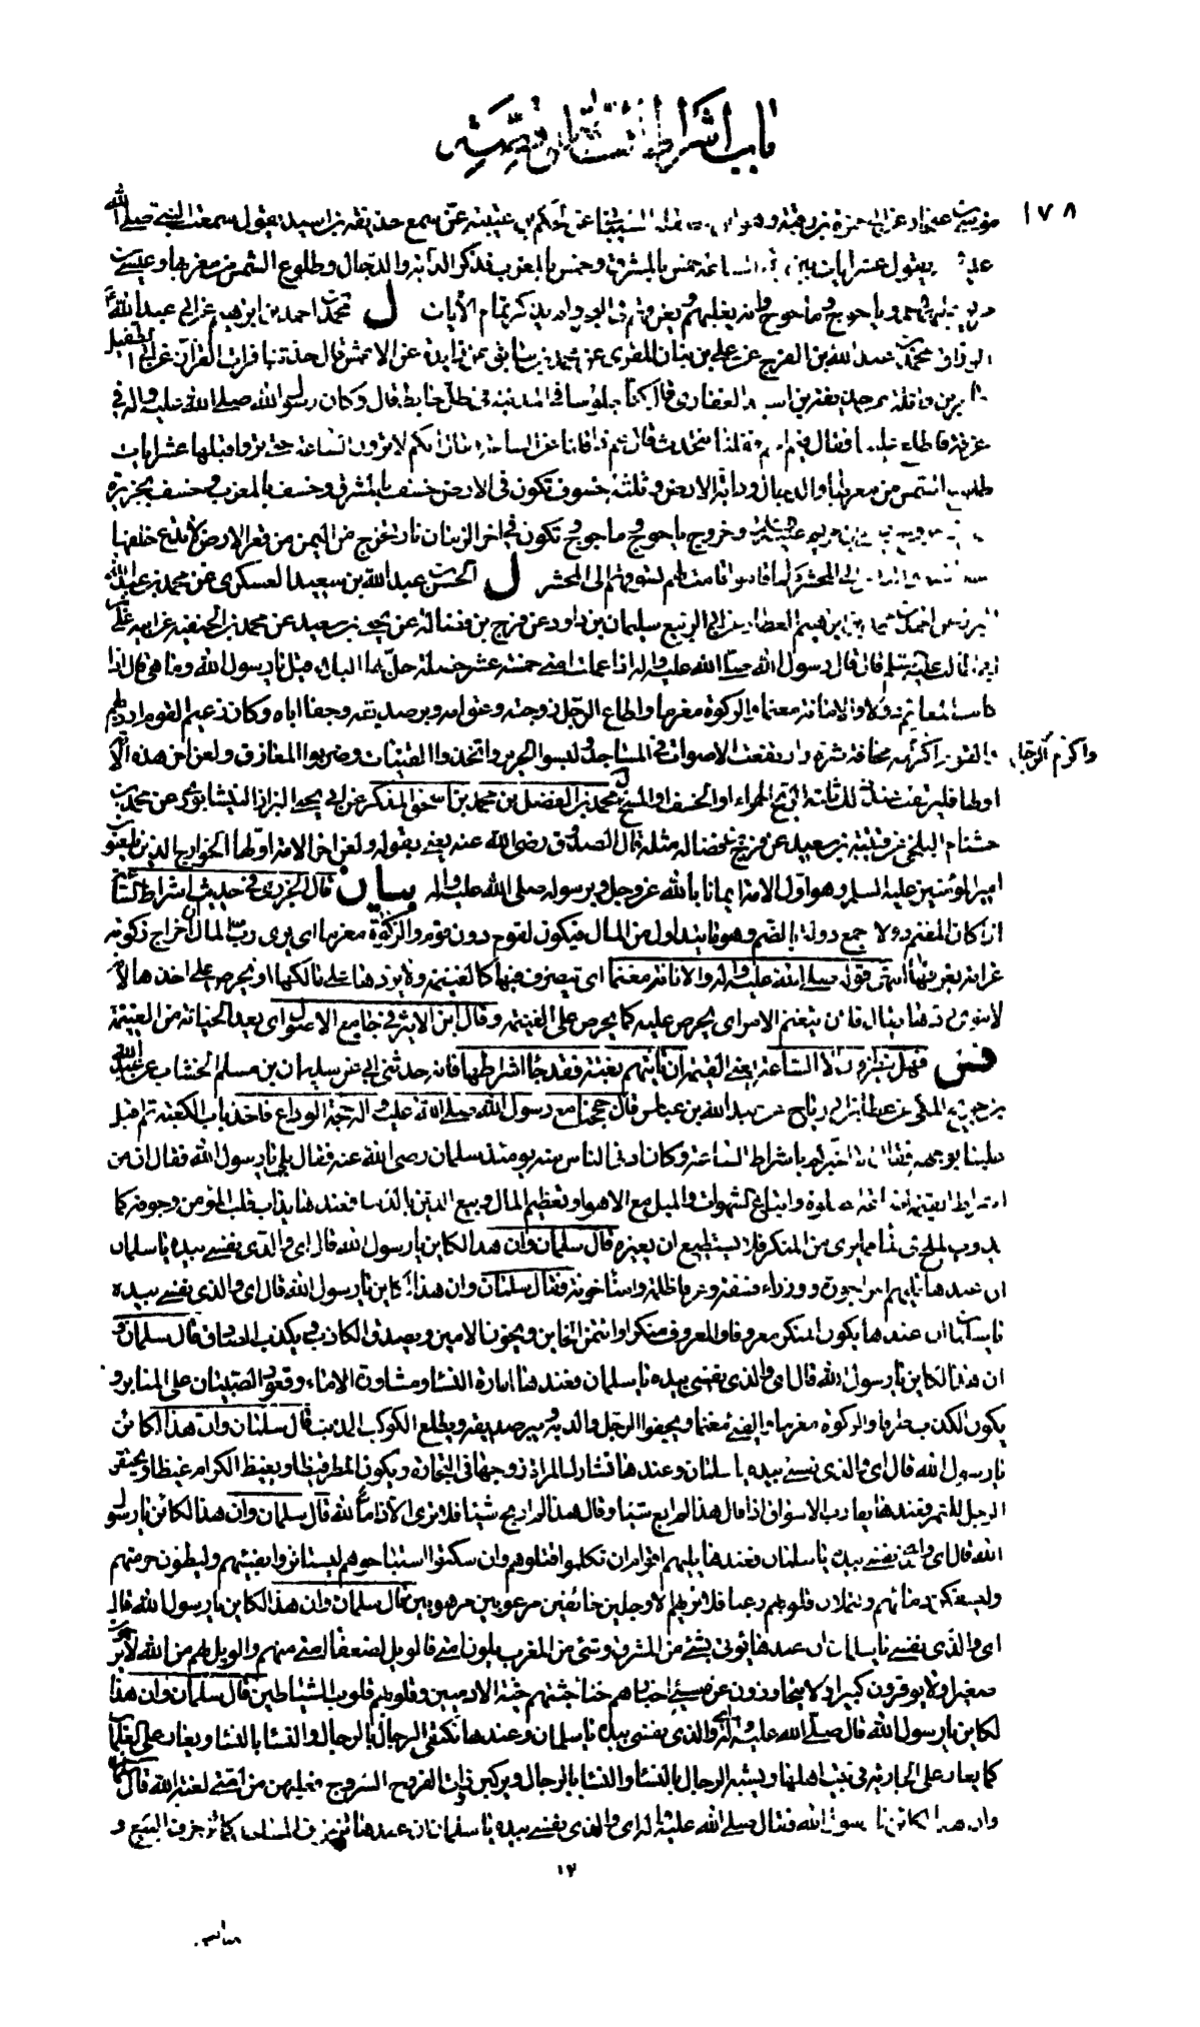 باب اشراط الساعة و قصة
١٧٨
عن الحكم بن عتيبة عمن سمع حذيفة بن اسيد يقول سمعت النبي صلى الله
عليه يقول عشر ايات بين يدى الساعة خمس بالمشرق وخمس بالمغرب فذكر الدابة والدجال وطلوع الشمس من مغربها وعيسى بن
مريم وياجوج وماجوج وانه يغلبهم ويغرقهم فى البحر ولم يذكر تمام الآيات ل محمد بن احمد بن ابرهيم عن ابى عبدالله
الوراق محمد بن عبدالله بن الفرج عن على بن بنان المقرى عن محمد بن سابق عن زايدة عن الاعمش قال حدثنا فرات القزاز عن ابى الطفيل
عن حذيفة بن اسيد الغفارى قال كنا جلوسا فى المدينة فى ظل حايط قال وكان رسول الله صلى الله عليه واله فى
غرفة فاطلع علينا فقال فيم انتم فقلنا نتحدث قال عم ذا قلنا عن الساعة قال انكم لا ترون الساعة حتى تروا قبلها عشر ايات
طلوع الشمس من مغربها والدجال ودابة الارض وثلثة خسوف تكون فى الارض خسف بالمشرق وخسف بالمغرب وخسف بجزيرة
وخروج ياجوج وماجوج تكون فى اخر الزمان نار تخرج من اليمن من قعر الارض لا تدع خلفها
الى المحشر كلما قاموا قامت لهم تسوقهم الى المحشر ل الحسن بن عبدالله بن سعيد العسكرى عن محمد بن عبدالله
عن ابى الربيع سليمان بن داود عن فرج بن فضالة عن يحيى بن سعيد عن محمد بن الحنفية عن ابيه على
قال قال رسول الله صلى الله عليه واله اذا عملت امتى خمسة عشر خصلة حل بها البلاء قيل يا رسول الله وما هى قال اذا
كانت المغانم دولا والامانة مغنما والزكوة مغرما واطاع الرجل زوجته وعق امه وبر صديقه وجفا اباه وكان زعيم القوم ارذلهم
واكرم الرجل
والقوم اكرمه مخافة شره وارتفعت الاصوات فى المساجد ولبسوا الحرير واتخذوا القينات وضربوا بالمعازف ولعن اخر هذه الامة
اولها فليرتقب عند ذلك ثلثة الريح الحمراء او الخسف او المسخ ل محمد بن الفضل بن محمد بن اسحق المذكر عن ابى يحيى البزاز النيشابورى عن محمد بن
حشنام البلخى عن قتيبة بن سعيد عن فرج بن فضالة مثله قال الصدوق رضى الله عنه يعنى بقوله ولعن اخر الامة اولها الخوارج الذين يلعنون
امير المؤمنين عليه السلم وهو اول الامة ايمانا بالله عز وجل وبرسوله صلى الله عليه واله بيان قال الجزرى فى حديث اشراط الساعة
اذا كان المغنم دولا جمع دولة بالضم وهو ما يتداول من المال فيكون لقوم دون قوم والزكوة مغرما اى يرى رب المال ان اخراج زكوته
غرامة يغرمها انتهى قوله صلى الله عليه واله والامانة مغنما اى يتصرف فيها كالغنيمة ولا يردها على مالكها او يحرص على اخذها لا
يقال فلان يتغنم الامر اى يحرص عليه كما يحرص على الغنيمة وقال ابن الاثير فى جامع الاصول اى يعد الخيانة من الغنيمة
فس فهل ينظرون الا الساعة يعنى القيمة ان تاتيهم بغتة فقد جاء اشراطها فانه حدثنى ابى عن سليمان بن مسلم الخشاب عن عبدالله
بن جريح المكى عن عطاء بن ابى رباح عن عبدالله بن عباس قال حججنا مع رسول الله صلى الله عليه واله حجة الوداع فاخذ باب الكعبة ثم اقبل
علينا بوجهه فقال الا اخبركم باشراط الساعة وكان ادنى الناس منه يومئذ سلمان رضى الله عنه فقال بلى يا رسول الله فقال ان من
اشراط القيمة اضاعة الصلوة واتباع الشهوات والميل مع الاهواء وتعظيم المال وبيع الدين بالدنيا فعندها يذاب قلب المؤمن فى جوفه كما
يذوب الملح فى الماء مما يرى من المنكر فلا يستطيع ان يغيره قال سلمان وان هذا لكاين يا رسول الله قال اى والذى نفسى بيده يا سلمان
ان عندها يليهم امراء جورة ووزراء فسقة وعرفاء ظلمة وامناء خونة فقال سلمان وان هذا لكاين يا رسول الله قال اى والذى نفسى بيده
يا سلمان ان عندها يكون المنكر معروفا والمعروف منكرا وائتمن الخاين ويخون الامين ويصدق الكاذب ويكذب الصادق قال سلمان و
ان هذا لكاين يا رسول الله قال اى والذى نفسى بيده يا سلمان فعندها امارة النساء ومشاورة الاماء وقعود الصبيان على المنابر و
يكون الكذب طرفا والزكوة مغرما والفىء مغنما ويجفو الرجل والديه ويبر صديقه ويطلع الكوكب المذنب قال سلمان وان هذا لكائن
يا رسول الله قال اى والذى نفسى بيده يا سلمان وعندها تشارك المراة زوجها فى التجارة ويكون المطر قيظا ويغيظ الكرام غيظا ويحتقر
الرجل المعسر فعندها يقارب الاسواق اذا قال هذا لم ابع شيئا وقال هذا لم اربح شيئا فلا ترى الا ذاما لله قال سلمان وان هذا لكائن يا رسول
الله قال اى والذى نفسى بيده يا سلمان فعندها يليهم اقوام ان تكلموا قتلوهم وان سكتوا استباحوهم ليستاثروا بفيئهم وليطؤن حرمتهم
وليسفكن دمائهم ولتملان قلوبهم رعبا فلا تراهم الا وجلين خائفين مرعوبين مرهوبين قال سلمان وان هذا لكاين يا رسول الله قال
اى والذى نفسى بيده يا سلمان ان عندها يؤتى بشىء من المشرق وشىء من المغرب يلون امتى فالويل لضعفاء امتى منهم والويل لهم من الله لا يرحمون
صغيرا ولا يوقرون كبيرا ولا يتجاوزون عن مسىء جثتهم جثة الادميين وقلوبهم قلوب الشياطين قال سلمان وان هذا
لكاين يا رسول الله قال صلى الله عليه واله اى والذى نفسى بيده يا سلمان وعندها تكتفى الرجال بالرجال والنساء بالنساء ويغار على الغلمان
كما يغار على الجارية فى بيت اهلها ويشبه الرجال بالنساء والنساء بالرجال ويركبن ذوات الفروج السروج فعليهن من امتى لعنة الله قال سلمان
وان هذا لكائن يا رسول الله فقال صلى الله عليه واله اى والذى نفسى بيده يا سلمان ان عندها تزخرف المساجد كما تزخرف البيع و
١٢